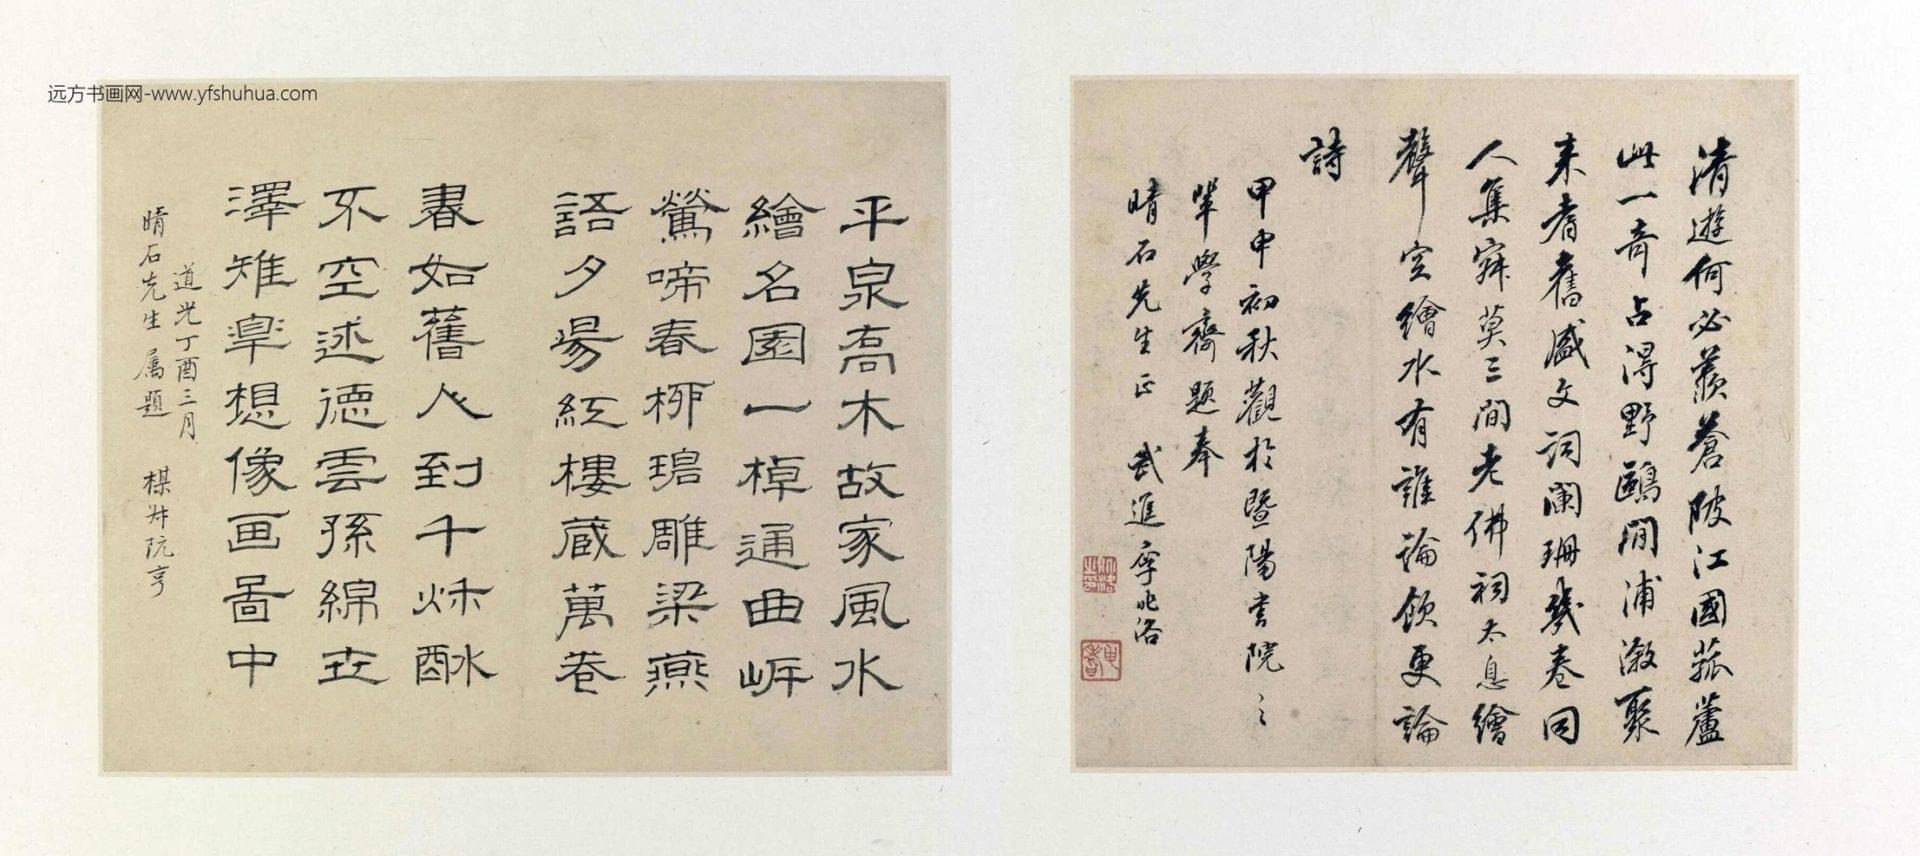 远方书画网-www.yfshuhua.com
清遊何必羨蒼陂江國菰蘆
此一奇占得野鷗閒浦漵聚
來耆舊盛文詞闌珊幾卷同
人集寂莫三閭老佛祠太息繪
聲空繪水有誰論飲更論
詩
甲申初秋觀於暨陽書院之
輩學齋題奉
晴石先生正 武進李兆洛
平泉喬木故家風水
繪名園一棹通曲㟁
鶯啼春柳碧雕梁燕
語夕陽紅樓藏萬卷
書如舊人到千秌酥
不空述德雲孫綿世
澤雉皐想像画啚中
道光丁酉三月
晴石先生属題 楳叔阮亨